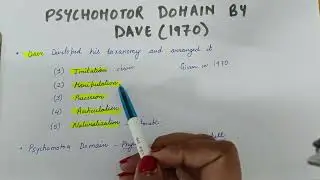 PSYCHOMOTOR DOMAIN BY
DAVE (1970)
• Dave Developed his taxonomy and arranged it
(1) Imitation
Given in 1970.
(2) Manipulation
(3) Precision
(4) Articulation
(5) Naturalization
• Psychomotor Domain -